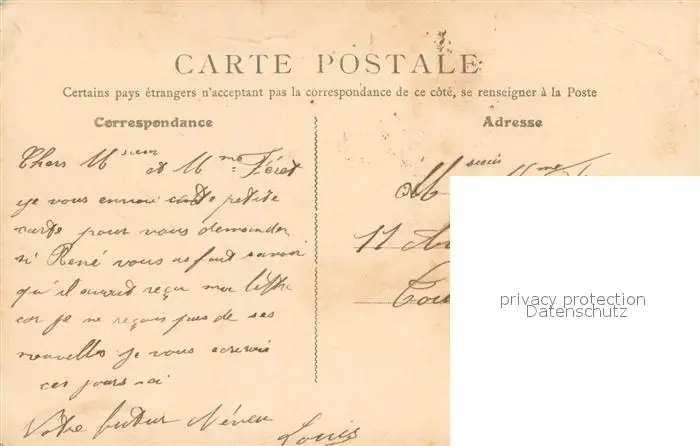 CARTE POSTALE
Certains pays étrangers n'acceptant pas la correspondance de ce côté, se renseigner à la Poste
Correspondance
Adresse
Chers Msieur et Mme Féret
je vous envoie cette petite
carte pour vous demander
si René vous a fait savoir
qu'il aurait reçu ma lettre
car je ne reçois pas de ses
nouvelles je vous écrirais
ces jours-ci
Votre futur Néveu
Louis
Msieur Mme
11
privacy protection
Datenschutz